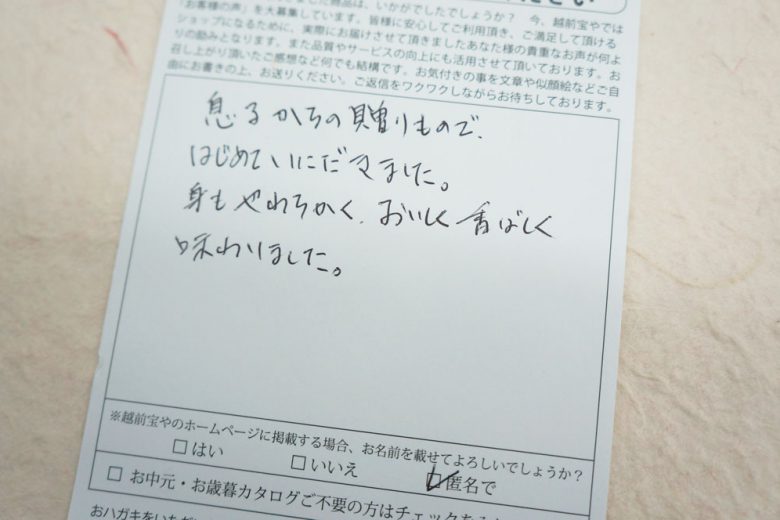 ださい
した商品は、いかがでしたでしょうか？ 今、越前宝やでは
「お客様の声」を大募集しています。皆様に安心してご利用頂き、ご満足して頂ける
ショップになるために、実際にお届けさせて頂きましたあなた様の貴重なお声が何よ
りの励みとなります。また品質やサービスの向上にも活用させて頂いております。お
召し上がり頂いたご感想など何でも結構です。お気付きの事を文章や似顔絵などご自
由にお書きの上、お送りください。ご返信をワクワクしながらお待ちしております。
息子からの贈りもので、
はじめていただきました。
身もやわらかく、おいしく香ばしく
味わいました。
※越前宝やのホームページに掲載する場合、お名前を載せてよろしいでしょうか？
□はい □いいえ ☑匿名で
□ お中元・お歳暮カタログご不要の方はチェックを
おハガキをいただ